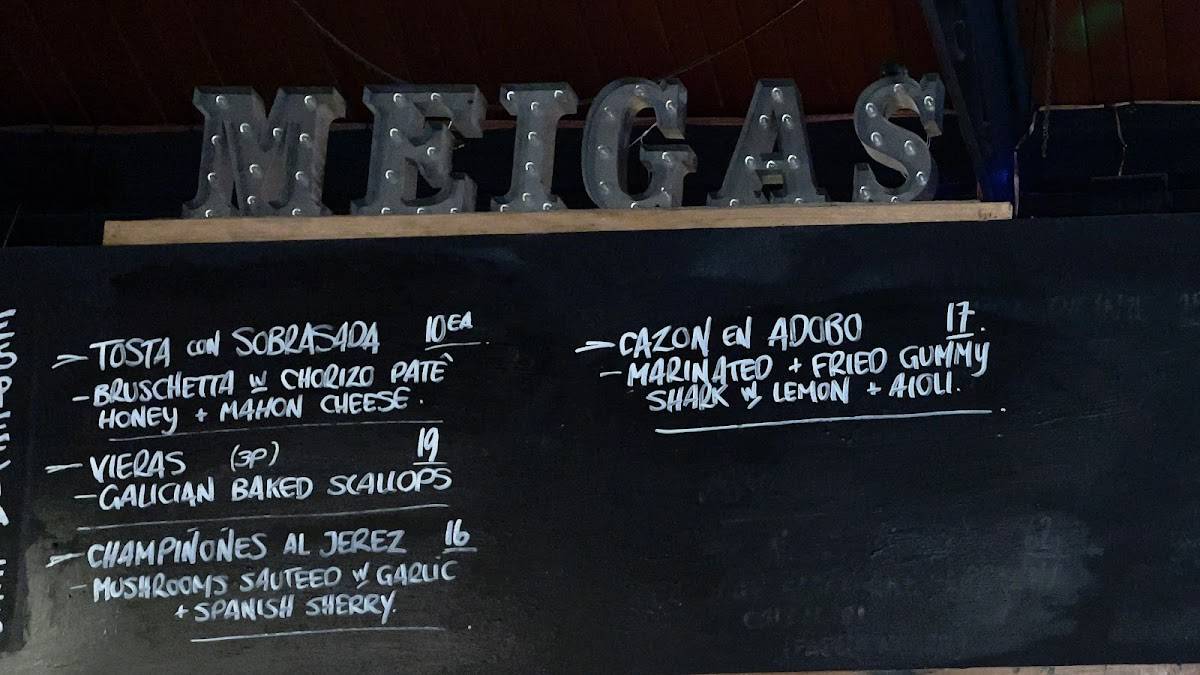 MEIGAS
TOSTA CON SOBRASADA 10EA
- BRUSCHETTA W CHORIZO PATÊ
HONEY + MAHON CHEESE.
VIERAS (3P) 19
- GALICIAN BAKED SCALLOPS
CHAMPIÑOÑES AL JEREZ 16
- MUSHROOMS SAUTEED W GARLIC
+ SPANISH SHERRY.
CAZON EN ADOBO 17.
- MARINATED + FRIED GUMMY
SHARK W LEMON + AIOLI.